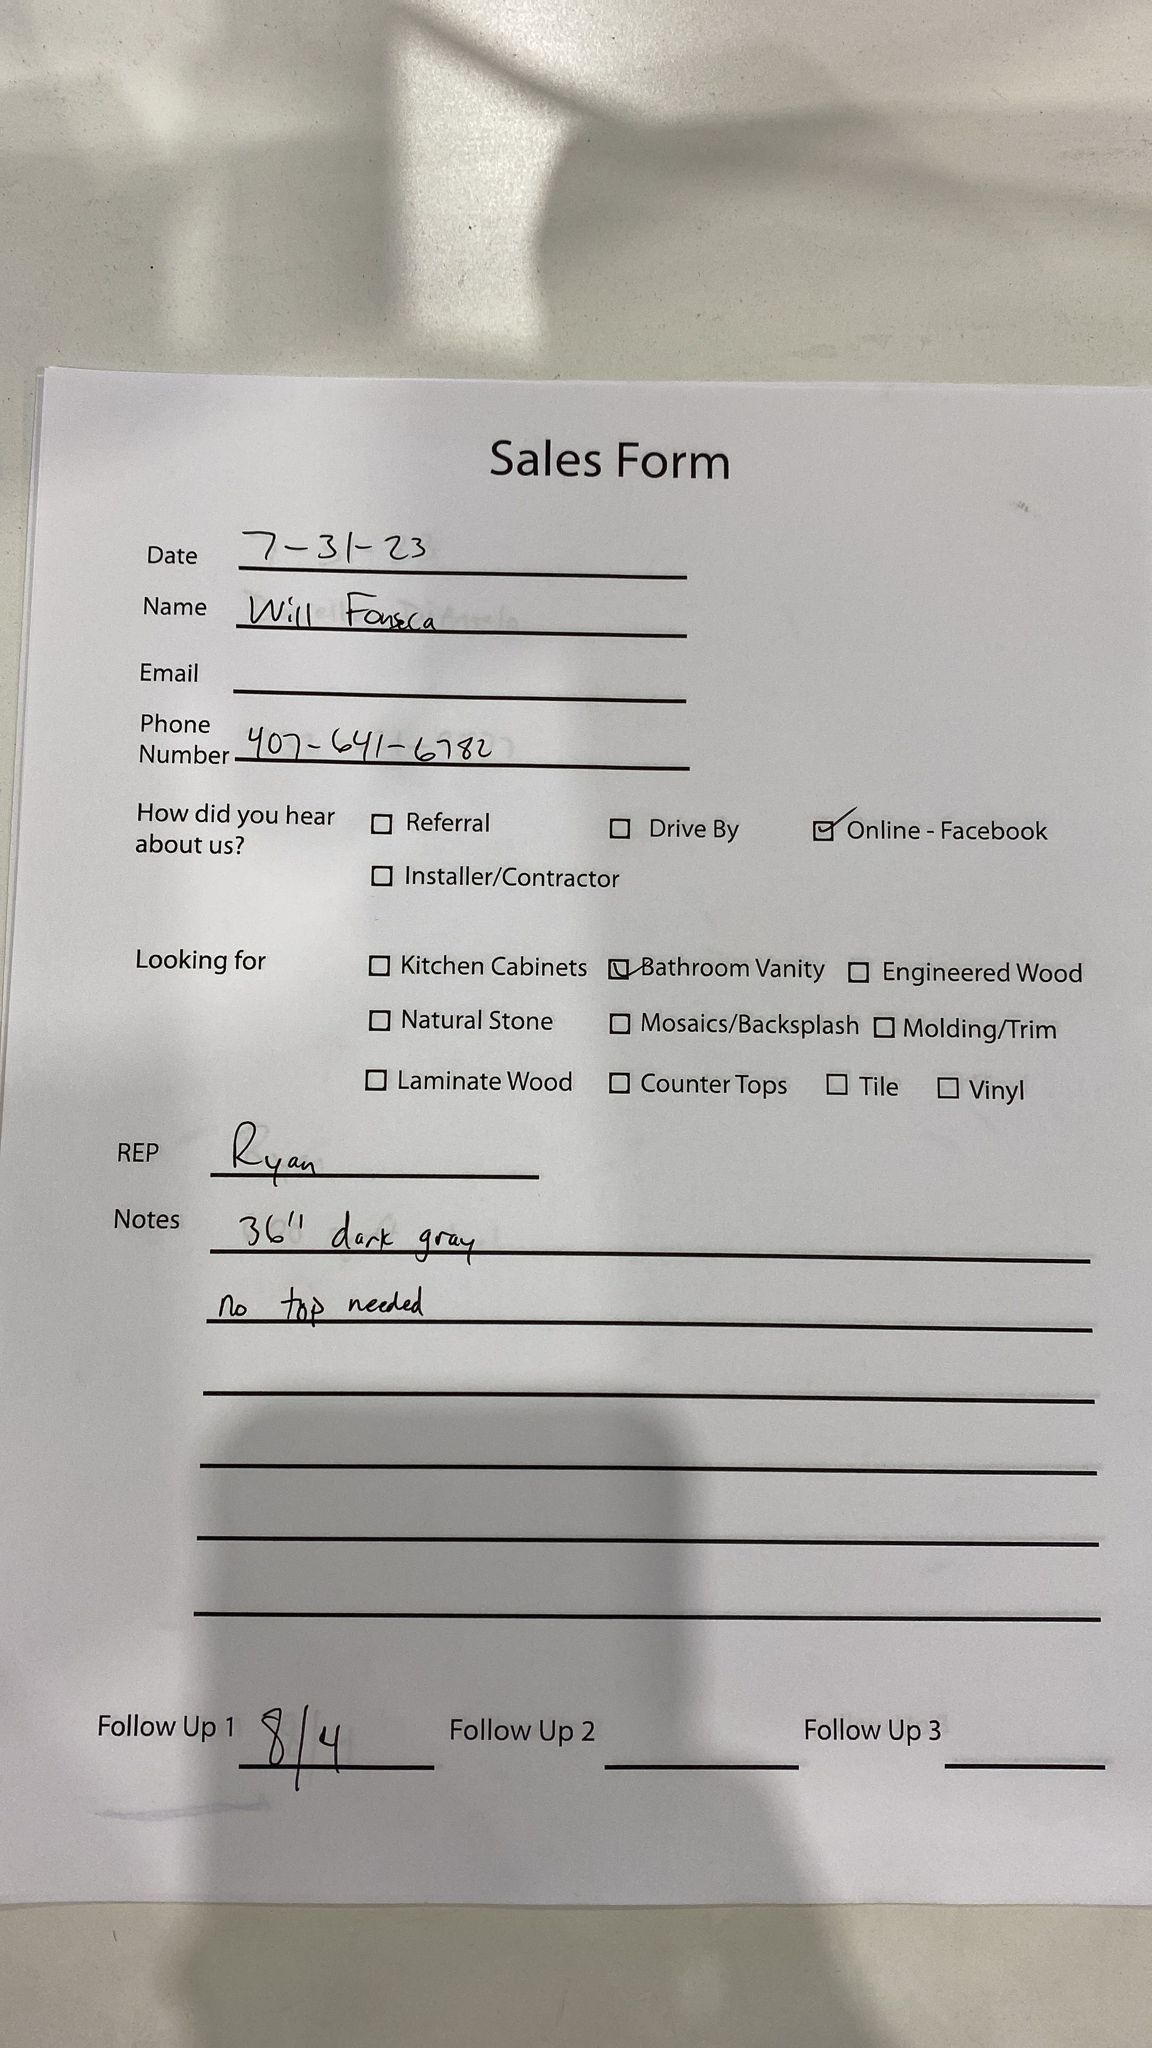 Sales Form
Date 7-31-23
Name Will Fonseca
Email
Phone
Number 407-641-6782
How did you hear about us? ☐ Referral ☐ Drive By ☑ Online - Facebook
☐ Installer/Contractor
Looking for ☐ Kitchen Cabinets ☑ Bathroom Vanity ☐ Engineered Wood
☐ Natural Stone ☐ Mosaics/Backsplash ☐ Molding/Trim
☐ Laminate Wood ☐ Counter Tops ☐ Tile ☐ Vinyl
REP Ryan
Notes 36" dark gray
no top needed
Follow Up 1 8/4 Follow Up 2 Follow Up 3